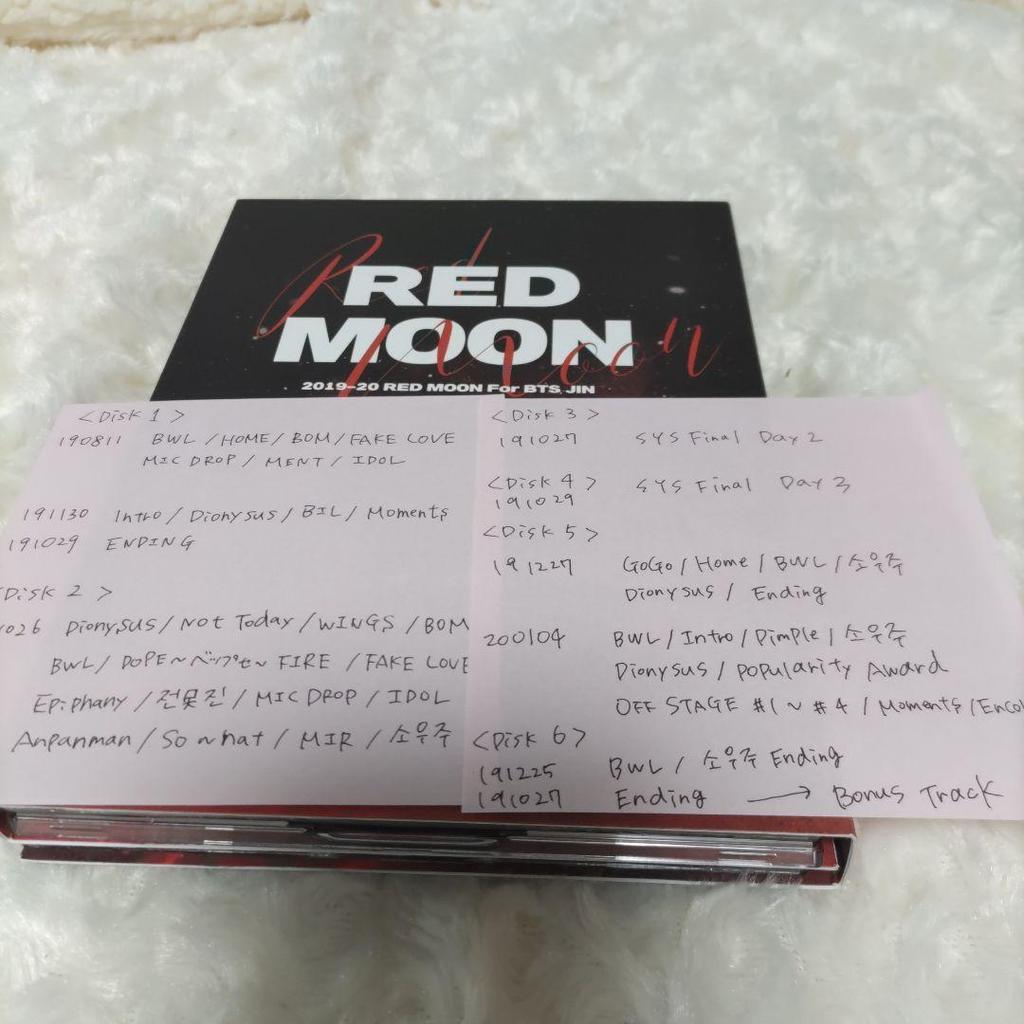 Red Moon
RED
MOON
2019-20 RED MOON For BTS JIN
<Disk 1>
190811 BWL / HOME / BOM / FAKE LOVE
MIC DROP / MENT / IDOL
191130 Intro / Dionysus / BIL / Moments
191029 ENDING
Disk 2 >
1026 Dionysus / Not Today / WINGS / BOM
BWL / DOPE ~ ベップセ ~ FIRE / FAKE LOVE
Epiphany / 전못진 / MIC DROP / IDOL
Anpanman / So what / MIR / 소우주
<Disk 3>
191027 SYS Final Day 2
<Disk 4>
191029 SYS Final Day 3
<Disk 5>
191227 GoGo / Home / BWL / 소우주
Dionysus / Ending
200104 BWL / Intro / Dimple / 소우주
Dionysus / Popularity Award
OFF STAGE #1 ~ #4 / Moments / Enco
<Disk 6>
191225 BWL / 소우주 Ending
191027 Ending → Bonus Track